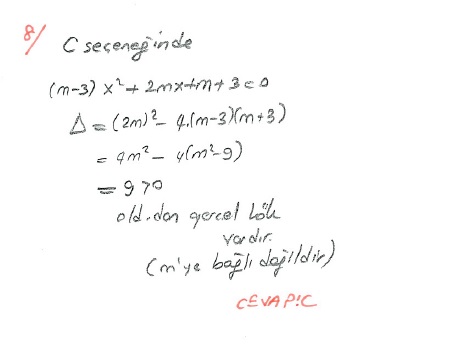 8/ C seçeneğinde
(m-3) x² + 2mx+m+3=0
Δ = (2m)² - 4.(m-3)(m+3)
= 4m² - 4(m²-9)
= 9 > 0
old.dan gerçel kök
vardır.
(m'ye bağlı değildir)
CEVAP:C